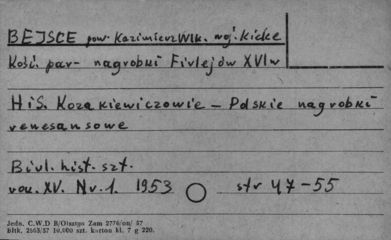 BEJSCE pow. Kazimierz Wlk. woj. Kielce
Kość. par- nagrobki Firlejów XVI w
H i S. Kozakiewiczowie - Polskie nagrobki
renesansowe
Biul. hist. szt.
rou. XV. Nr. 1. 1953 str 47-55
Jedn. C.W.D B/Olsztyn Zam 2776/on/ 57
Bltk. 2563/57 10.000 szt. karton kl. 7 g 220.